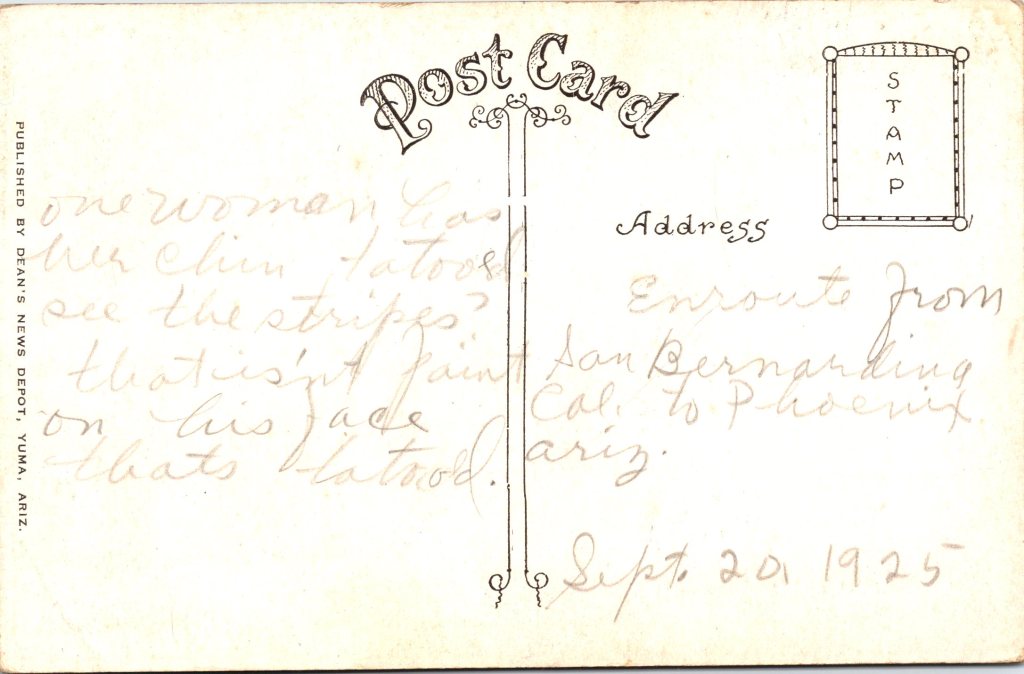 Post Card
STAMP
Address
PUBLISHED BY DEAN'S NEWS DEPOT, YUMA, ARIZ.
one woman has
her chin tatooed
see the stripes?
that isn't paint
on his face
thats tatooed.
Enroute from
San Bernardino
Cal. to Phoenix
ariz.
Sept. 20, 1925